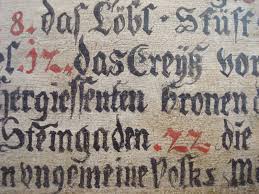 8. das Löbl. Stüft
17. das Creÿtz vor
hergiessenten bronen d
Stemgaden. 22. die
nungemeine Volks M